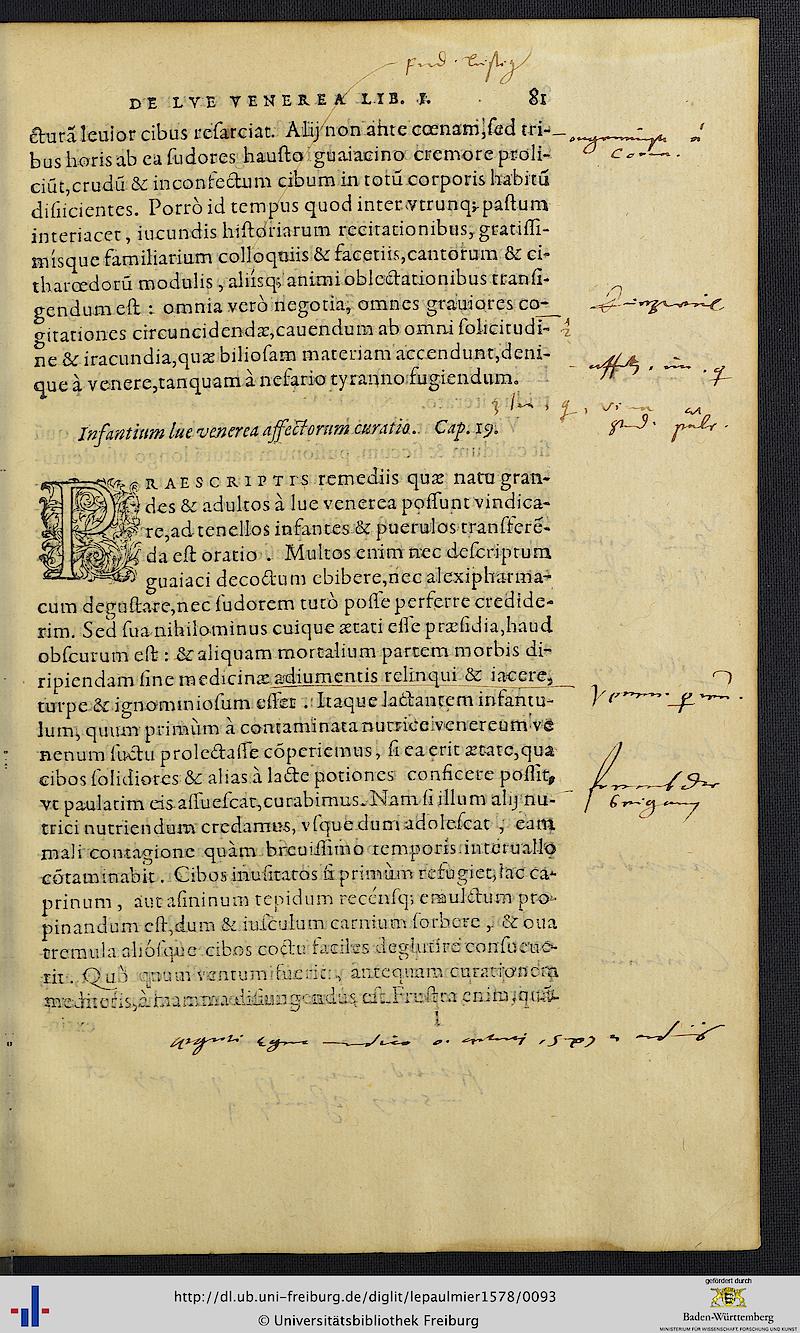 DE LVE VENEREA LIB. I. 81
cturã leuior cibus resarciat. Alij non ante cœnam, sed tri-
bus horis ab ea sudores hausto guaiacino cremore proli-
ciũt, crudũ & inconfectum cibum in totũ corporis habitũ
disiicientes. Porrò id tempus quod inter vtrunq; pastum
interiacet, iucundis historiarum recitationibus, gratissi-
mísque familiarium colloquiis & facetiis, cantorum & ci-
tharœdorũ modulis, aliísq; animi oblectationibus transi-
gendum est: omnia verò negotia, omnes grauiores co-
gitationes circuncidendæ, cauendum ab omni solicitudi-
ne & iracundia, quæ biliosam materiam accendunt, deni-
que à venere, tanquam à nefario tyranno fugiendum.
Infantium lue venerea affectorum curatio. Cap. 19.
PRAESCRIPTIS remediis quæ natu gran-
des & adultos à lue venerea possunt vindica-
re, ad tenellos infantes & puerulos transferẽ-
da est oratio. Multos enim nec descriptum
guaiaci decoctum ebibere, nec alexipharma-
cum degustare, nec sudorem tutò posse perferre credide-
rim. Sed sua nihilominus cuique ætati esse præsidia, haud
obscurum est: & aliquam mortalium partem morbis di-
ripiendam sine medicinæ adiumentis relinqui & iacere,
turpe & ignominiosum esset. Itaque lactantem infantu-
lum, quum primùm à contaminata nutrice venereum ve
nenum suctu prolectasse cõperiemus, si ea erit ætate, qua
cibos solidiores & alias à lacte potiones conficere possit,
vt paulatim eis assuescat, curabimus. Nam si illum alij nu-
trici nutriendum credamus, vsque dum adolescat, eam
mali contagione quàm breuissimo temporis interuallo
cõtaminabit. Cibos inusitatos si primùm refugiet, lac ca-
prinum, aut asininum tepidum recénsq; emulctum pro-
pinandum est, dum & iusculum carnium sorbere, & oua
tremula aliósque cibos coctu faciles deglutire consueue-
rit. Quò quum ventum fuerit, antequam curationem
mediteris, à mamma disiungendus est. Frustra enim, quã-
l
http://dl.ub.uni-freiburg.de/diglit/lepaulmier1578/0093
© Universitätsbibliothek Freiburg
gefördert durch
Baden-Württemberg
MINISTERIUM FÜR WISSENSCHAFT, FORSCHUNG UND KUNST